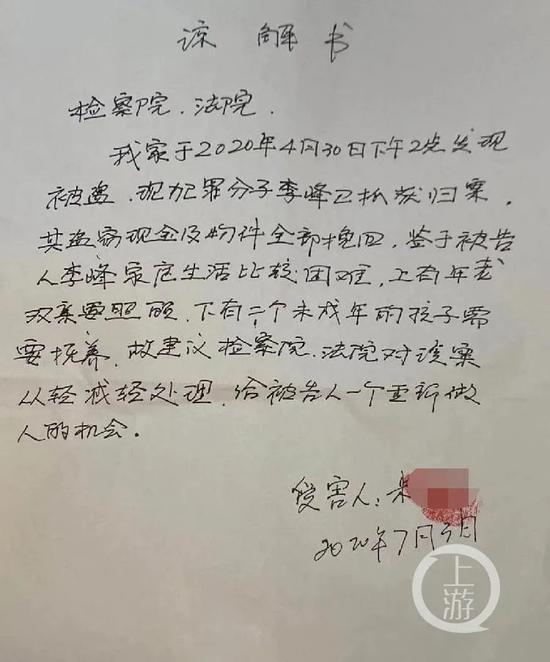 谅解书
检察院、法院、
我家于2020年4月30日下午2点发现
被盗,现犯罪分子李峰已抓获归案,
其盗窃现金及物件全部挽回,鉴于被告
人李峰家庭生活比较困难,上有年老
双亲要照顾,下有二个未成年的孩子需
要抚养,故建议检察院、法院对该案
从轻减轻处理,给被告人一个重新做
人的机会。
受害人:
2020年7月 日
上游